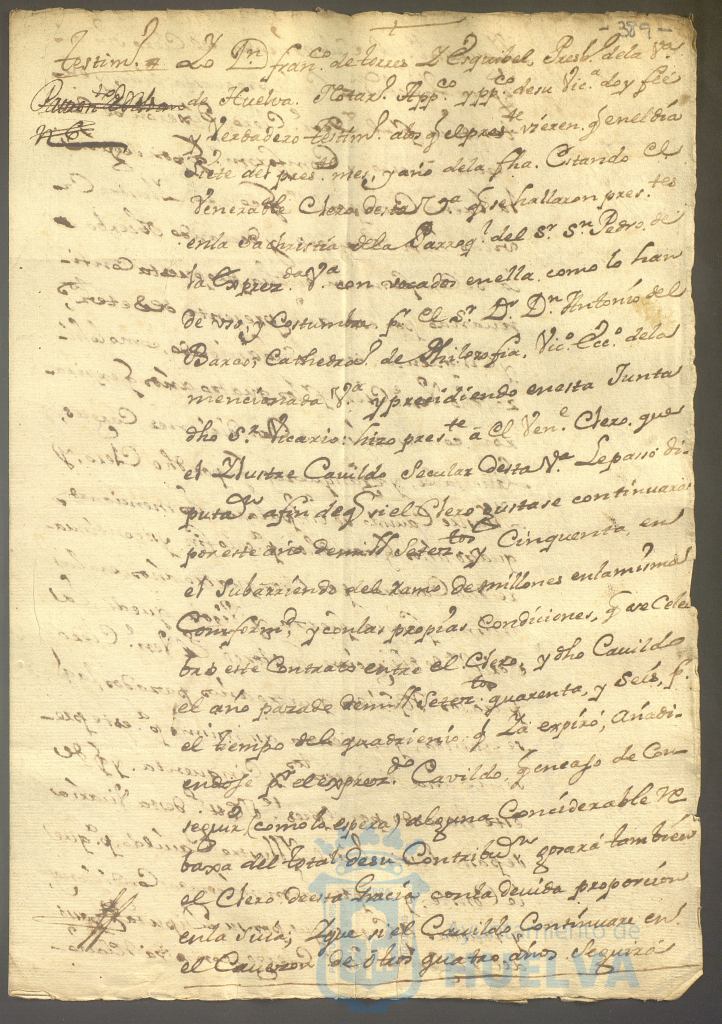 - 389 -
testim.º Yo Dn franco. de torres Y Esquibel Presb.º dela Va
de Huelva. Notar.º Appco. y ppco. de su Vica. doy fee
y Verdadero testim.º a los q el preste. vieren. q en el dia
siete del preste. mes, y año dela fha. Estando el
Venerable Clero desta Va. q se hallaron prestes
en la Sachristia de la Parroql. del Sr. Sn Pedro, de
la Exprezda. Va. convocados en ella como lo han
de uso, y Costumbre pr. el Sr Dr. Dn Antonio del
Barco, Cathedrco. de Philosofia, Vico. Ecco. dela
mencionada Va. y presidiendo en esta Junta
dho Sr. Vicario: hizo preste. â el Vene. Clero, que
el Ilustre Cavildo Secular desta Va. le passó di-
putaon. a fin de q si el Clero gustase continuara
por este año de mill Seteztos. y Cinquenta, en
el Subarriendo del Ramo de millones en la misma
Conformd. y con las propias Condiciones, q se cele
bró este Contrato entre el Clero, y dho Cavildo
el año pazado de mill Seteztos. quarenta, y Seis, pr.
el tiempo del quadrienio q Ya expiró, añadi-
endose pr. el exprezdo. Cavildo, q en caso de Con-
seguir (como lo espera) alguna Considerable re
baxa del total de su Contribuon. gozará tambien
el Clero de esta Gracia con la devida proporcion
en la suia; Y que si el Cavildo Continuare en
el Cavezon de otros quatro años seguirá
Ayuntamiento de
HUELVA